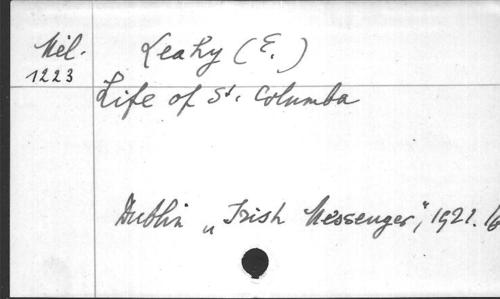 Mél. Leahy (E.)
1223
Life of St. Columba
Dublin „Irish Messenger", 1921.